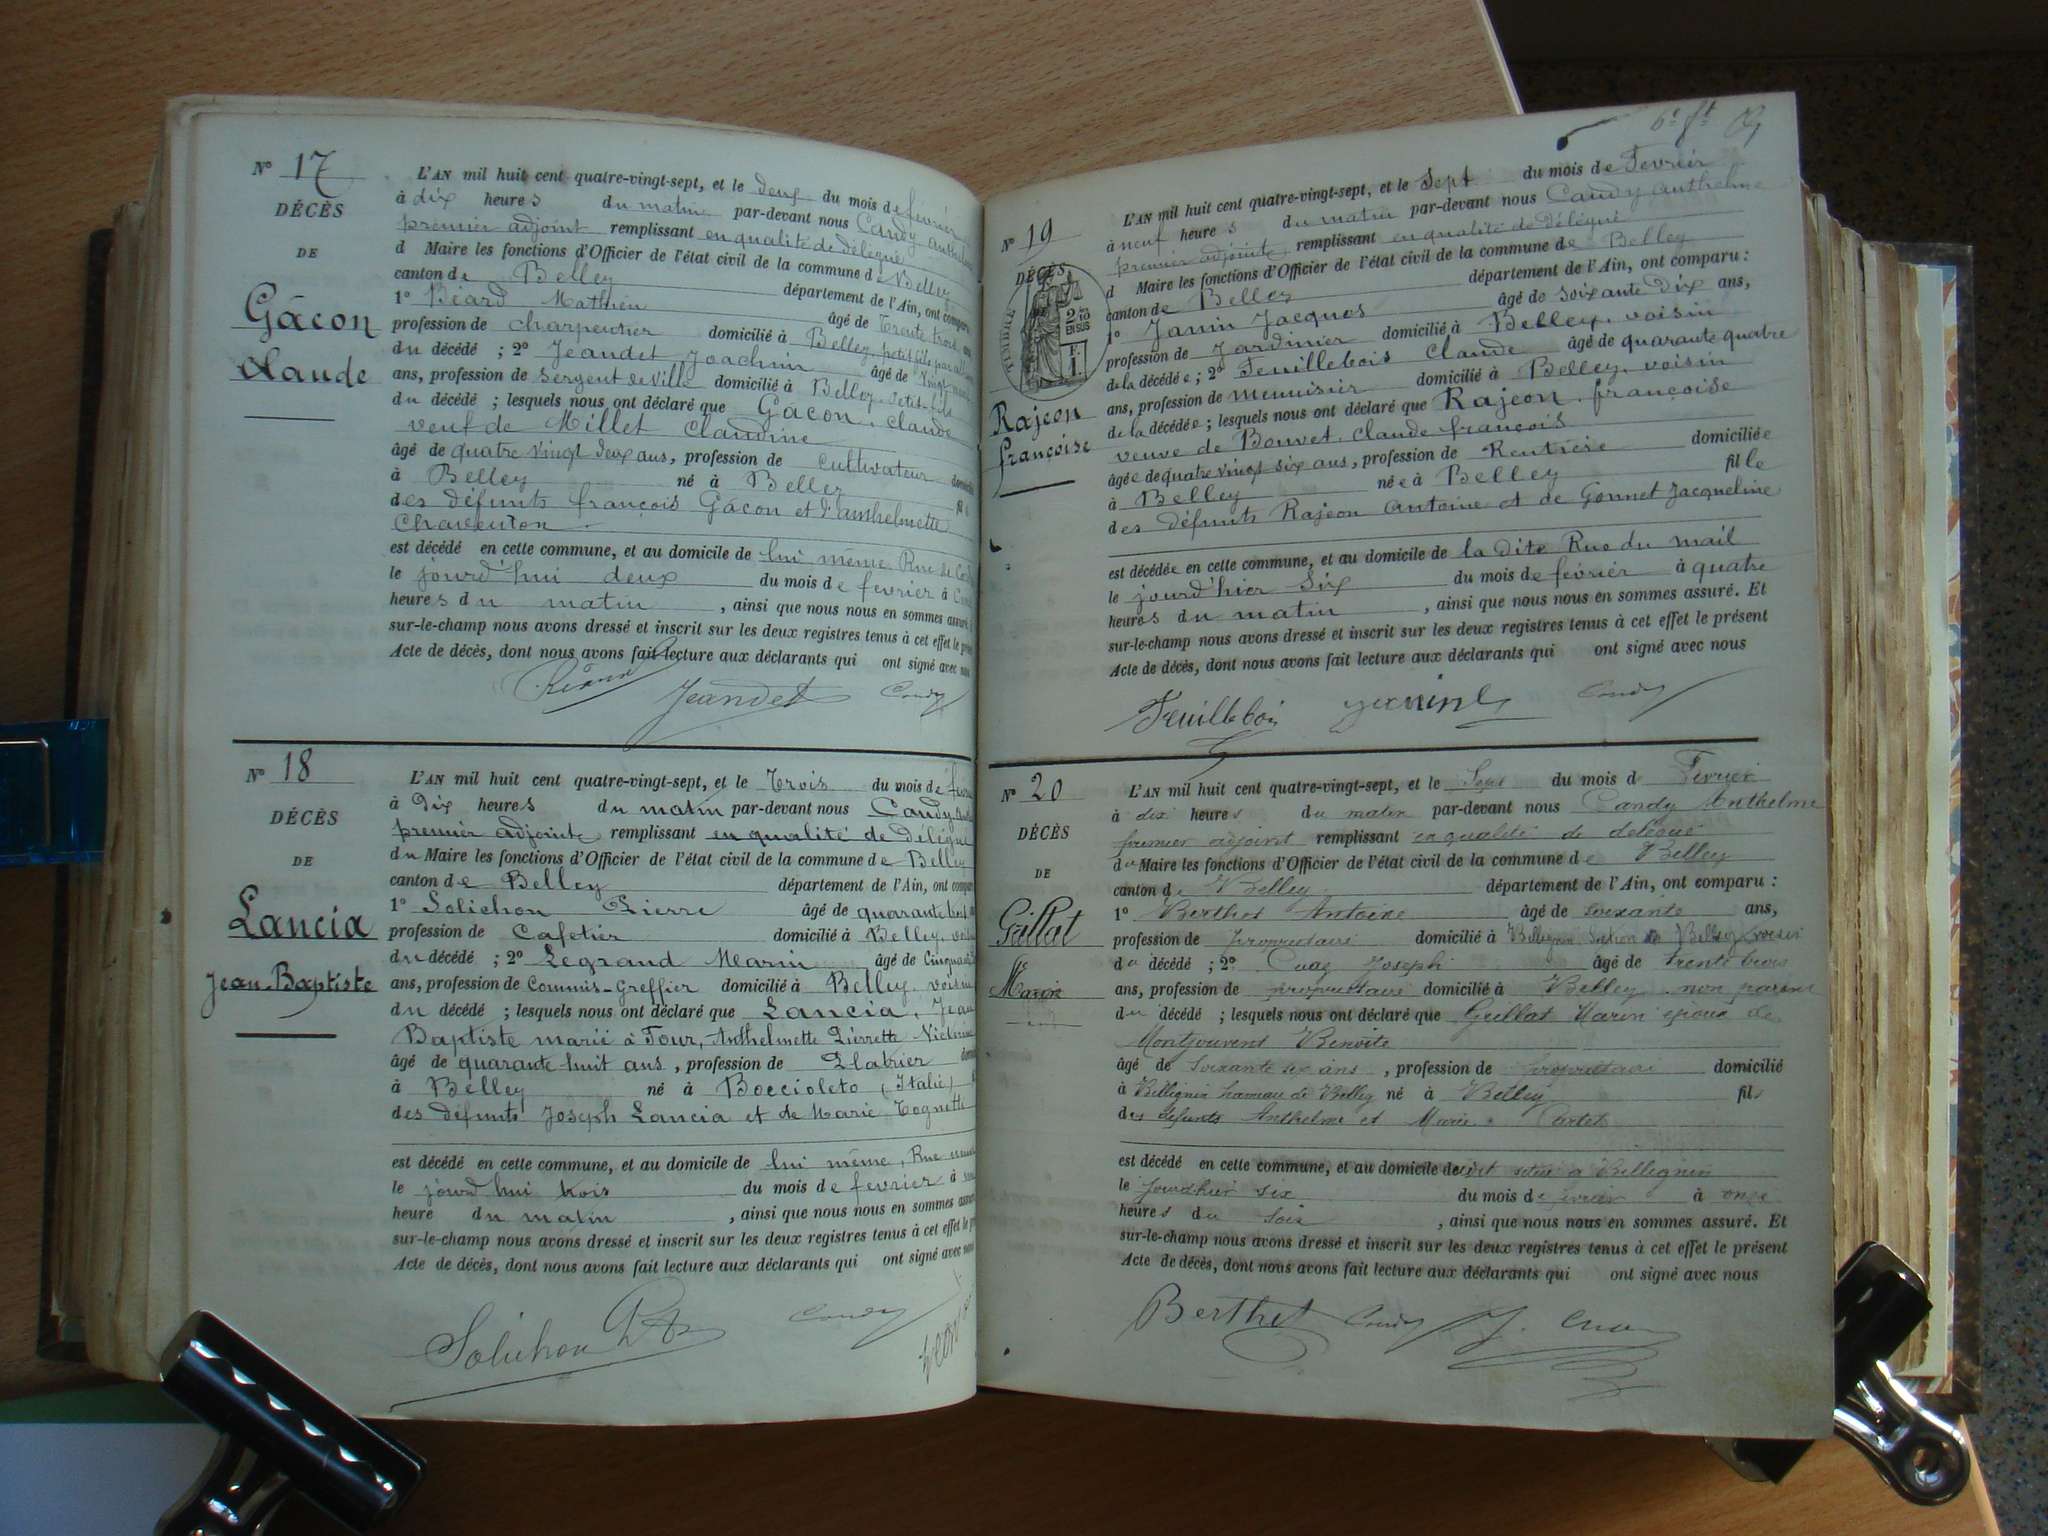 N° 17
DÉCÈS
DE
Gâcon
Claude
L'AN mil huit cent quatre-vingt-sept, et le deux du mois de février
à dix heures du matin par-devant nous Candy anthelme
premier adjoint remplissant en qualité de délégué
d Maire les fonctions d'Officier de l'état civil de la commune de Belley
canton de Belley département de l'Ain, ont comparu
1° Béard Mathieu âgé de Trente trois ans
profession de charpentier domicilié à Belley, petit fils par
du décédé ; 2° Jeandet Joachim âgé de vingt neuf
ans, profession de sergent de ville domicilié à Belley. petit-fils
du décédé ; lesquels nous ont déclaré que Gâcon, claude
veuf de Millet Claudine
âgé de quatre vingt deux ans, profession de cultivateur
à Belley né à Belley
des défunts françois Gâcon et d'anthelmette
est décédé en cette commune, et au domicile de lui même Rue de
le jourd'hui deux du mois de fevrier à
heures du matin , ainsi que nous nous en sommes assuré
sur-le-champ nous avons dressé et inscrit sur les deux registres tenus à cet effet le
Acte de décès, dont nous avons fait lecture aux déclarants qui ont signé avec nous
Béard Jeandet Candy
N° 18
DÉCÈS
DE
Lancia
Jean-Baptiste
L'AN mil huit cent quatre-vingt-sept, et le Trois du mois de
à Dix heures du matin par-devant nous Candy
premier adjoint remplissant en qualité de Délégué
du Maire les fonctions d'Officier de l'état civil de la commune de Belley
canton de Belley département de l'Ain, ont
1° Solichon Pierre âgé de quarante
profession de Cafetier domicilié à Belley,
du décédé ; 2° Legrand Marin âgé de
ans, profession de Commis-Greffier domicilié à Belley, voisin
du décédé ; lesquels nous ont déclaré que Lancia, Jean
Baptiste marié à Tour, Anthelmette Pierrette
âgé de quarante huit ans , profession de Plâtrier
à Belley né à Boccioleto (Italie)
des défunts Joseph Lancia et de Marie
est décédé en cette commune, et au domicile de lui même, Rue
le jourd'hui trois du mois de fevrier à
heure du matin , ainsi que nous nous en sommes
sur-le-champ nous avons dressé et inscrit sur les deux registres tenus à cet effet le
Acte de décès, dont nous avons fait lecture aux déclarants qui ont signé avec
Solichon Candy
N° 19
DÉCÈS
TIMBRE
2/10 EN SUS
Rajeon
françoise
L'AN mil huit cent quatre-vingt-sept, et le Sept du mois de Fevrier
à neuf heures du matin par-devant nous Candy anthelme
premier adjoint remplissant en qualité de délégué
d Maire les fonctions d'Officier de l'état civil de la commune de Belley
canton de Belley département de l'Ain, ont comparu :
1° Janin Jacques âgé de soixante Dix ans,
profession de Jardinier domicilié à Belley, voisin
de la décédée ; 2° Feuillebois Claude âgé de quarante quatre
ans, profession de menuisier domicilié à Belley, voisin
de la décédée ; lesquels nous ont déclaré que Rajeon, françoise
veuve de Bouvet, claude françois
âgée de quatre vingt six ans, profession de Rentière domiciliée
à Belley née à Belley fille
des défunts Rajeon Antoine et de Gonnet Jacqueline
est décédée en cette commune, et au domicile de la dite Rue du mail
le jourd'hier six du mois de février à quatre
heures du matin , ainsi que nous nous en sommes assuré. Et
sur-le-champ nous avons dressé et inscrit sur les deux registres tenus à cet effet le présent
Acte de décès, dont nous avons fait lecture aux déclarants qui ont signé avec nous
Feuillebois Candy
N° 20
DÉCÈS
DE
Gillat
Marin
L'AN mil huit cent quatre-vingt-sept, et le Sept du mois d Fevrier
à dix heures du matin par-devant nous Candy Anthelme
premier adjoint remplissant en qualité de délégué
du Maire les fonctions d'Officier de l'état civil de la commune de Belley
canton de Belley département de l'Ain, ont comparu :
1° Berthet Antoine âgé de soixante ans,
profession de propriétaire domicilié à Billignin section de Belley voisin
du décédé ; 2° Cuaz Joseph âgé de trente trois
ans, profession de propriétaire domicilié à Belley non parent
du décédé ; lesquels nous ont déclaré que Gillat Marin époux de
Montjouvent Benoite
âgé de soixante six ans , profession de propriétaire domicilié
à Billignin hameau de Belley né à Belley fils
des défunts Anthelme et Marie Cartet
est décédé en cette commune, et au domicile de situé à Billignin
le jourd'hier six du mois de février à onze
heures du soir , ainsi que nous nous en sommes assuré. Et
sur-le-champ nous avons dressé et inscrit sur les deux registres tenus à cet effet le présent
Acte de décès, dont nous avons fait lecture aux déclarants qui ont signé avec nous
Berthet Candy J. Cuaz